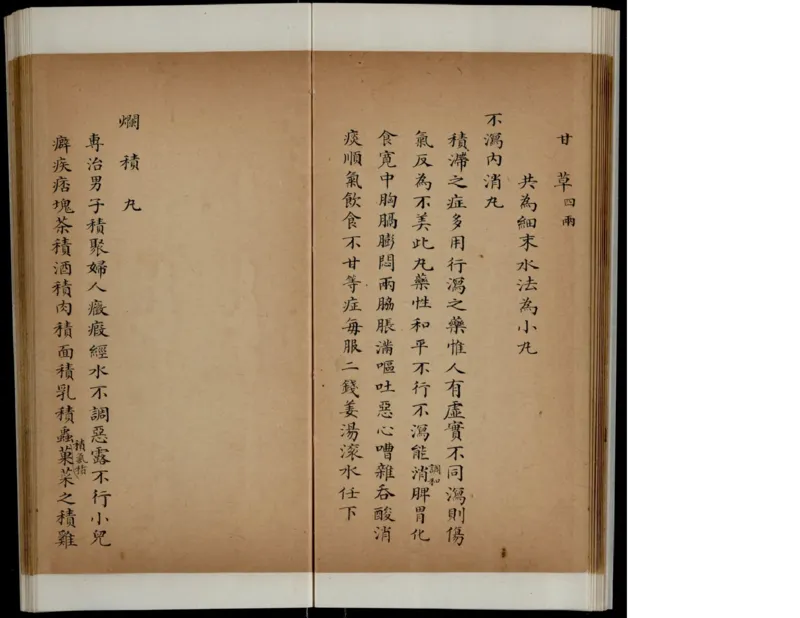 甘草四兩
共為細末水法為小丸
不瀉內消丸
積滯之症多用行瀉之藥惟人有虛實不同瀉則傷
氣反為不美此丸藥性和平不行不瀉能消調和脾胃化
食寬中胸膈膨悶兩脇脹滿嘔吐惡心嘈雜吞酸消
痰順氣飲食不甘等症每服二錢姜湯滾水任下
爛積丸
專治男子積聚婦人癥瘕經水不調惡露不行小兒
癖疾痞塊茶積酒積肉積面積乳積蟲積氣積菓菜之積雖